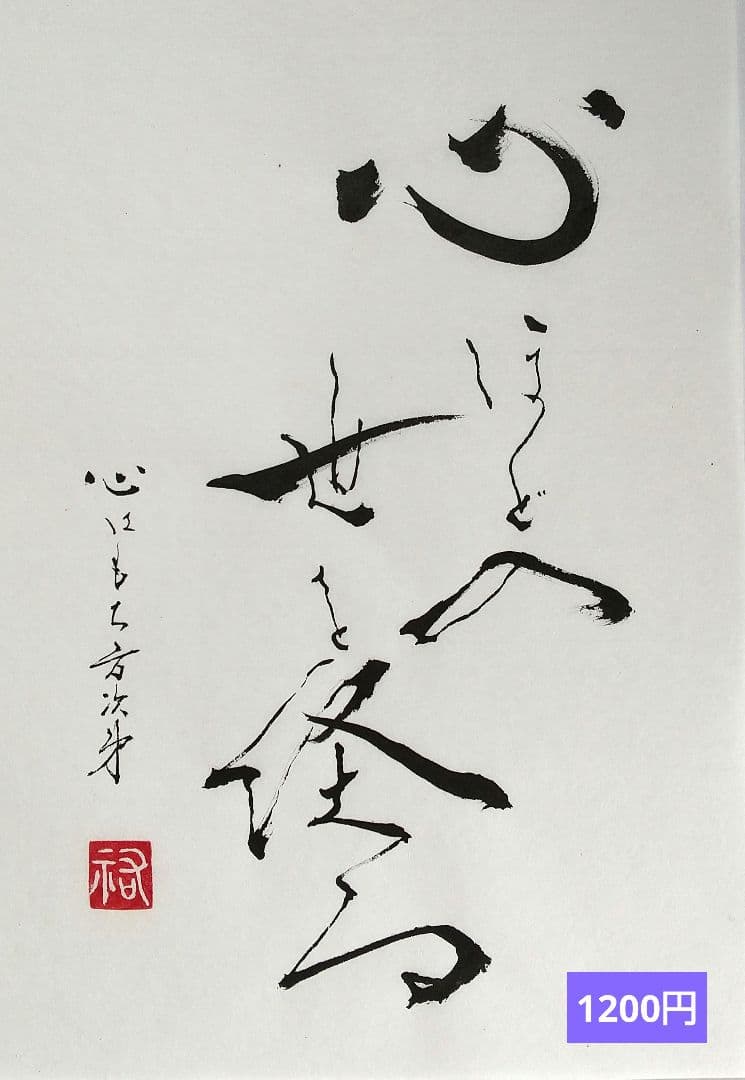 心ほどの
世を経る
心はもち方次第
1200円